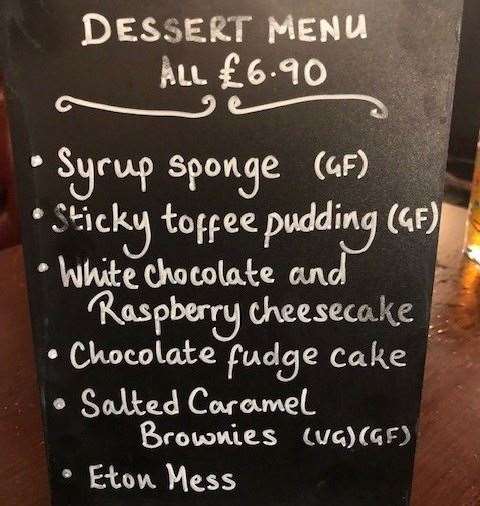 DESSERT MENU
ALL £6.90
• Syrup sponge (GF)
• Sticky toffee pudding (GF)
• White chocolate and
Raspberry cheesecake
• Chocolate fudge cake
• Salted Caramel
Brownies (VG)(GF)
• Eton Mess